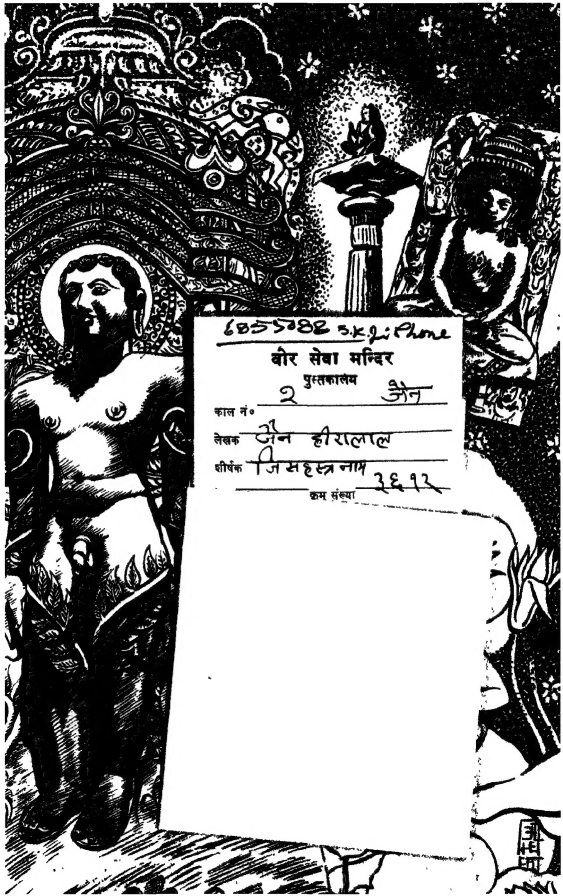 6855088 S.K Ji Phone
वीर सेवा मन्दिर
पुस्तकालय
काल नं० २ जैन
लेखक जैन हीरालाल
शीर्षक जि सहस्त्र नाम
क्रम संख्या ३६१२